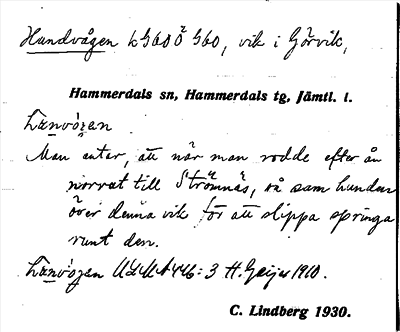 Hundvågen k 560 Ö 560, vik i Görvik,
Hammerdals sn, Hammerdals tg, Jämtl. l.
Man antar, att när man rodde efter ån
norrut till Strömnäs, så sam hunden
över denna vik för att slippa springa
runt den.
ULMA 446:3 H. Geijer 1910.
C. Lindberg 1930.